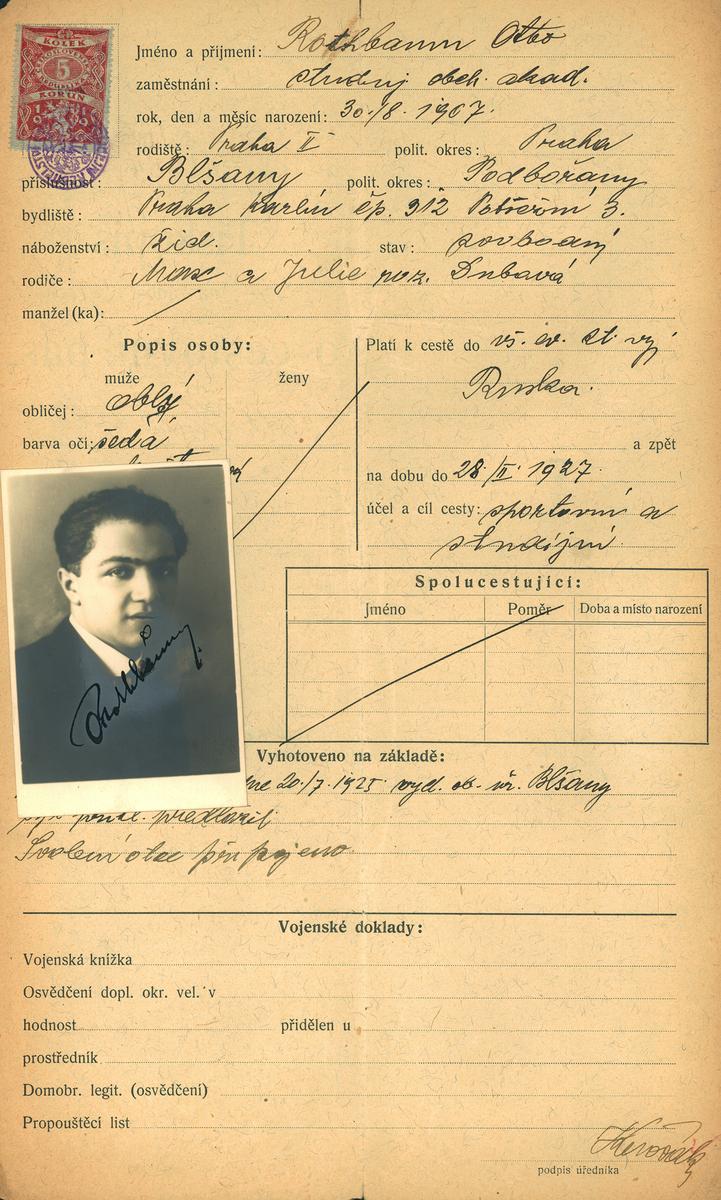 KOLEK
5
KORUN
Jméno a přijmení: Rothbaum Otto
zaměstnání: studuj. obch. akad.
rok, den a měsíc narození: 30./8. 1907.
rodiště: Praha II polit. okres: Praha
příslušnost: Blšany polit. okres: Podbořany
bydliště: Praha Karlín čp. 312 3.
náboženství: žid. stav: svobodný
rodiče: Max a Julie roz. Dubová
manžel (ka):
Popis osoby:
Platí k cestě do vš. ev. st. vyj
muže ženy
Ruska.
obličej: oblý
barva očí: šedá
a zpět
na dobu do 28./II. 1927.
účel a cíl cesty: sportovní a
studijní.
Spolucestující:
Jméno Poměr Doba a místo narození
Rothbaum
Vyhotoveno na základě:
dne 20./7. 1925 vyd. ob. úř. Blšany
předložil
Svolení otce připojeno
Vojenské doklady:
Vojenská knížka
Osvědčení dopl. okr. vel. v
hodnost přidělen u
prostředník
Domobr. legit. (osvědčení)
Propouštěcí list
podpis úředníka